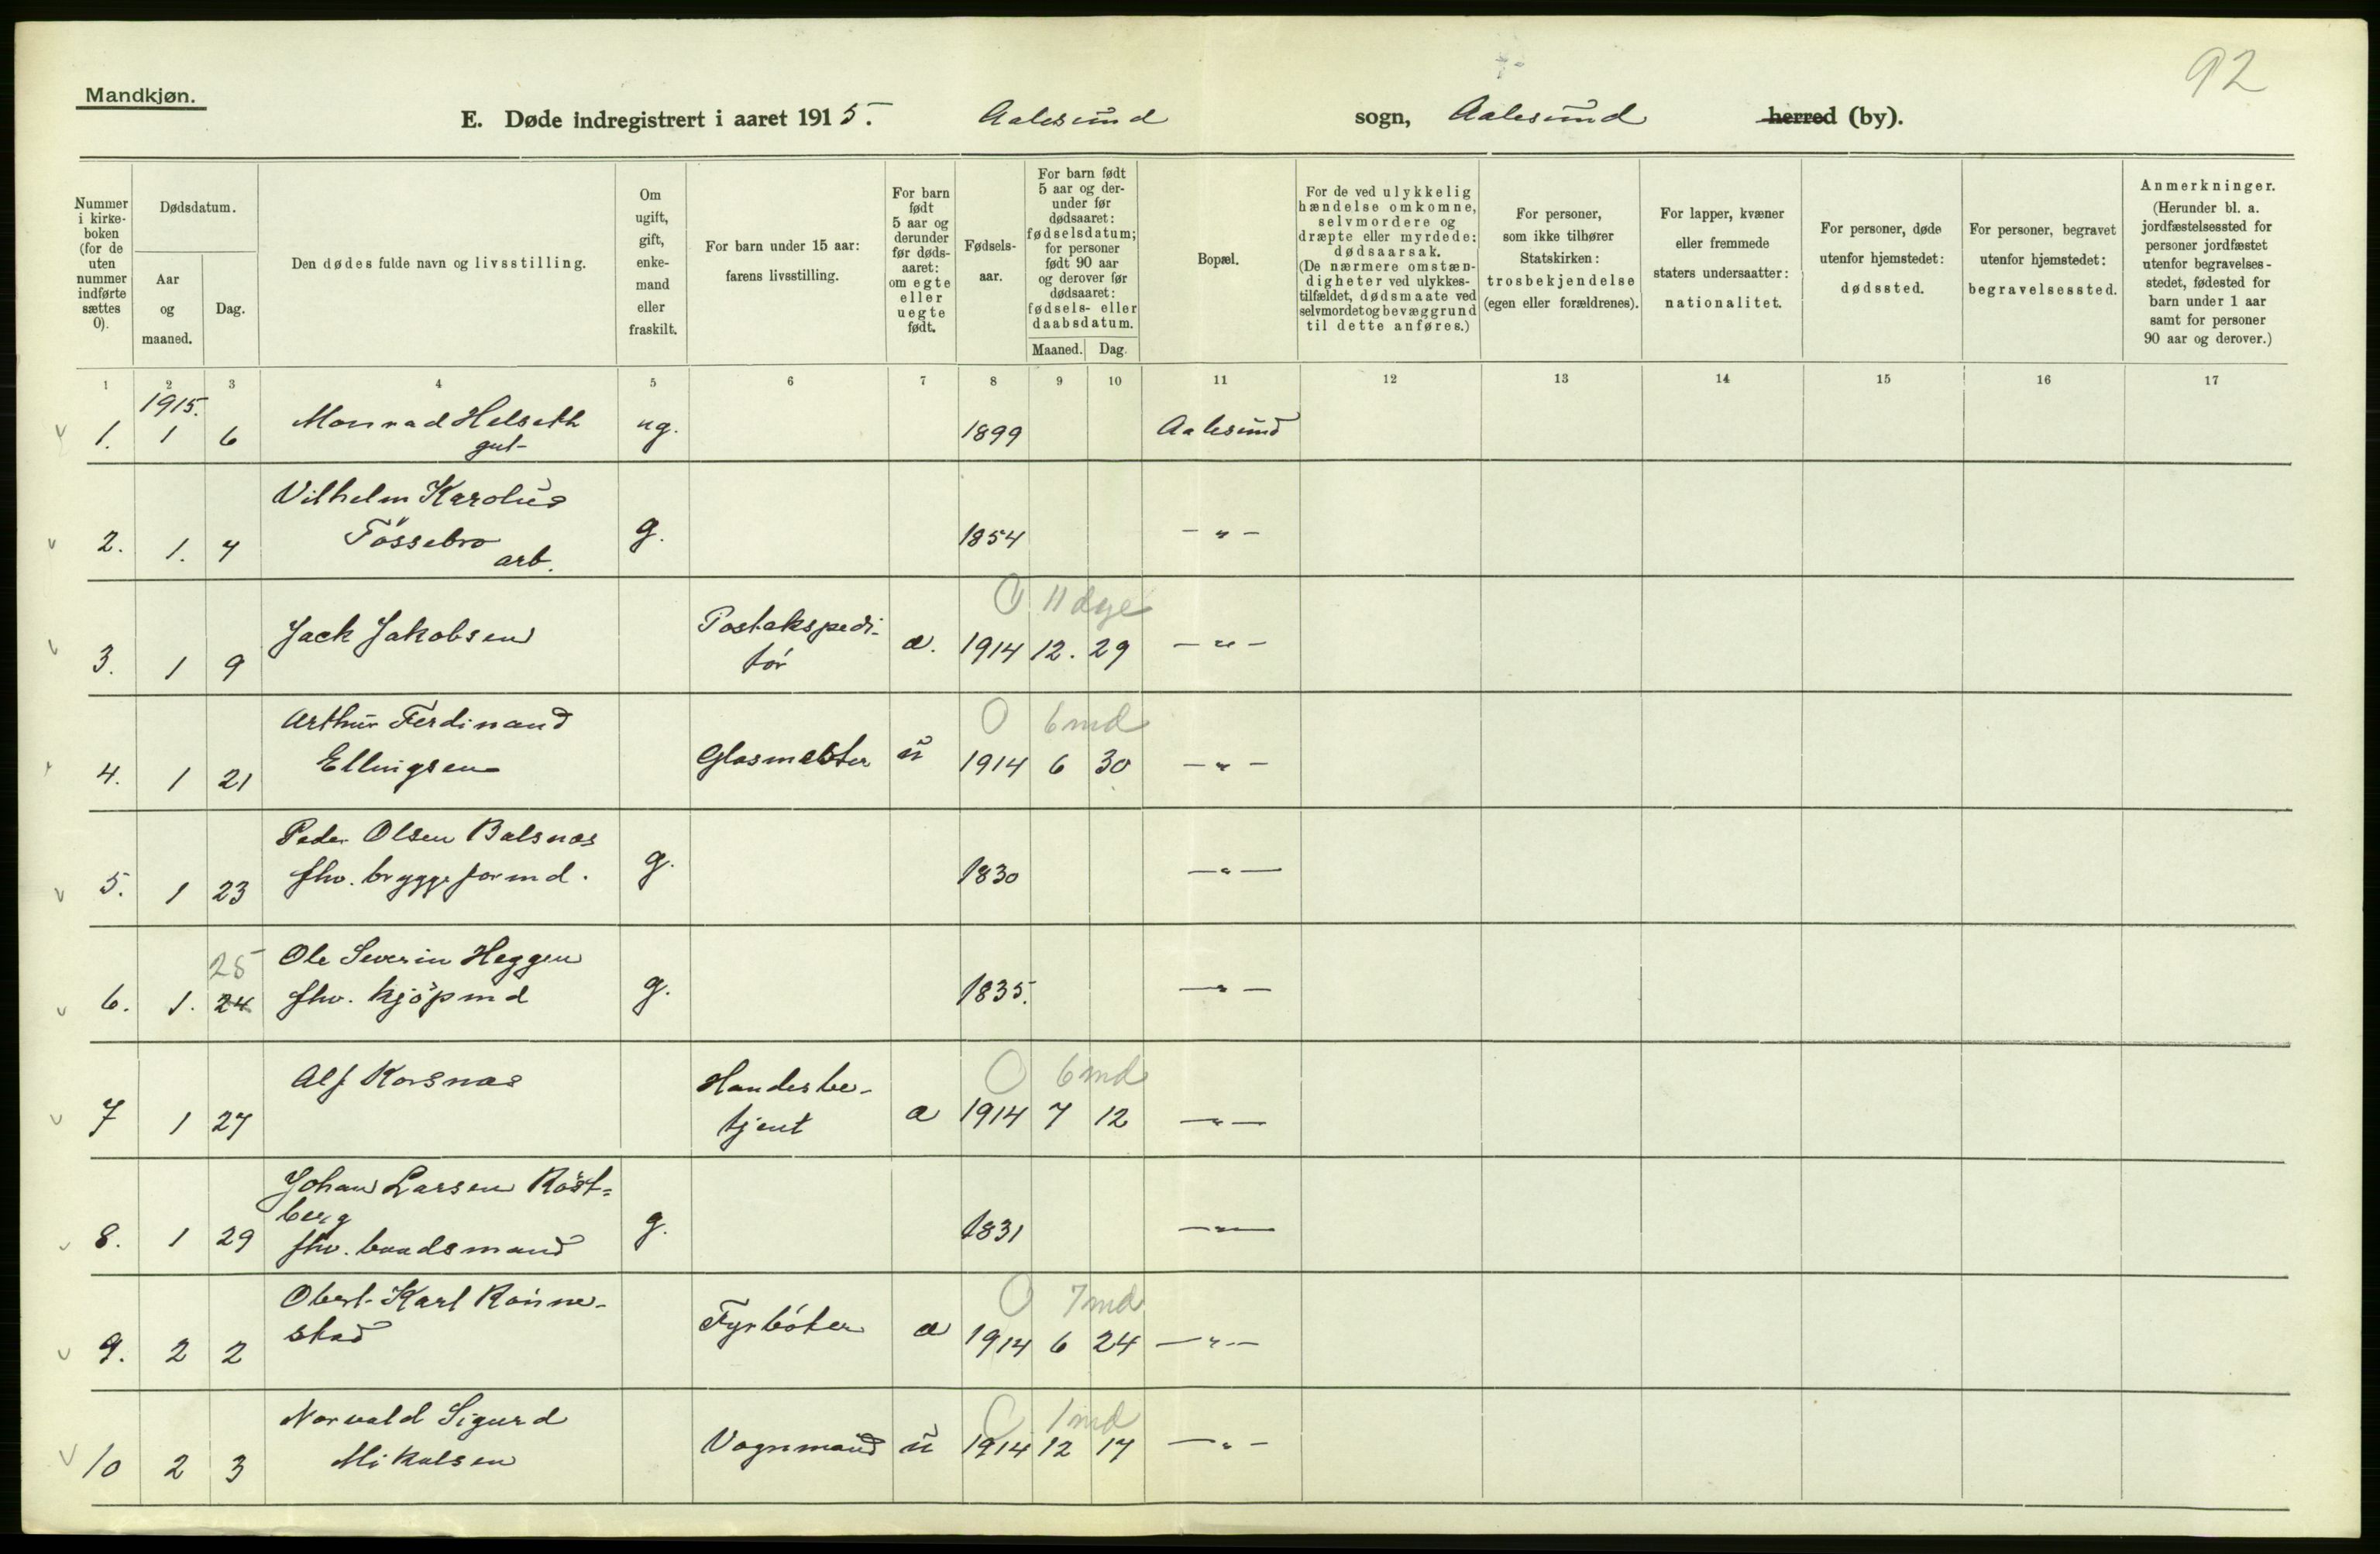 92
Mandkjøn.
E. Døde indregistrert i aaret 1915. Aalesund sogn, Aalesund herred (by).
Nummer i kirke-boken (for de uten nummer indførte sættes 0).
Dødsdatum.
Aar og maaned.
Dag.
Den dødes fulde navn og livsstilling.
Om ugift, gift, enke-mand eller fraskilt.
For barn under 15 aar: farens livsstilling.
For barn født 5 aar og derunder før døds-aaret: om egte eller uegte født.
Fødsels-aar.
For barn født 5 aar og der-under før dødsaaret: fødselsdatum; for personer født 90 aar og derover før dødsaaret: fødsels- eller daabsdatum.
Maaned. Dag.
Bopæl.
For de ved ulykkelig hændelse omkomne, selvmordere og dræpte eller myrdede: dødsaarsak. (De nærmere omstæn-digheter ved ulykkes-tilfældet, dødsmaate ved selvmordet og bevæggrund til dette anføres.)
For personer, som ikke tilhører Statskirken: trosbekjendelse (egen eller forældrenes).
For lapper, kvæner eller fremmede staters undersaatter: nationalitet.
For personer, døde utenfor hjemstedet: dødssted.
For personer, begravet utenfor hjemstedet: begravelsessted.
Anmerkninger. (Herunder bl. a. jordfæstelsessted for personer jordfæstet utenfor begravelses-stedet, fødested for barn under 1 aar samt for personer 90 aar og derover.)
1 2 3 4 5 6 7 8 9 10 11 12 13 14 15 16 17
1915.
1. 1 6 Monrad Helseth ug. 1899 Aalesund
gut
Vilhelm Karolus
2. 1. 7 Tössebro g. 1854 — " —
arb.
0 11 dge
3. 1 9 Jack Jakobsen Postekspedi- æ. 1914 12. 29 — " —
tör
Arthur Ferdinand 0 6 md
4. 1 21 Ellingsen Glasmester u 1914 6 30 — " —
Peder Olsen Balsnes
5. 1 23 fhv. bryggeformd. g. 1830 — " —
25 Ole Severin Heggen
6. 1. 24 fhv. kjöpmd g. 1835. — " —
Alf Korsnes Handesbe- 0 6 md
7 1 27 tjent æ 1914 7 12 — " —
Johan Larsen Röst=
berg
8. 1 29 fhv. baadsmand g. 1831 — " —
Obert Karl Rönne- 0 7 md
9. 2 2 stad Fyrböter æ 1914 6 24 — " —
Norvald Sigurd 0 1 md
10 2 3 Mikalsen Vognmand u 1914 12 17 — " —